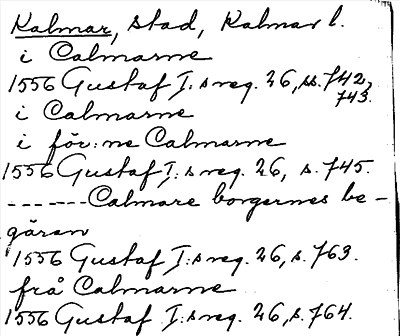 Kalmar, stad, Kalmar l.
i Calmarne
1556 Gustaf I:s reg. 26, ss. 742,
743.
i Calmarne
i för:ne Calmarne
1556 Gustaf I:s reg. 26, s. 745.
------- Calmare borgernes be-
gären
1556 Gustaf I:s reg. 26, s. 763.
frå Calmarne
1556 Gustaf I:s reg. 26, s. 764.